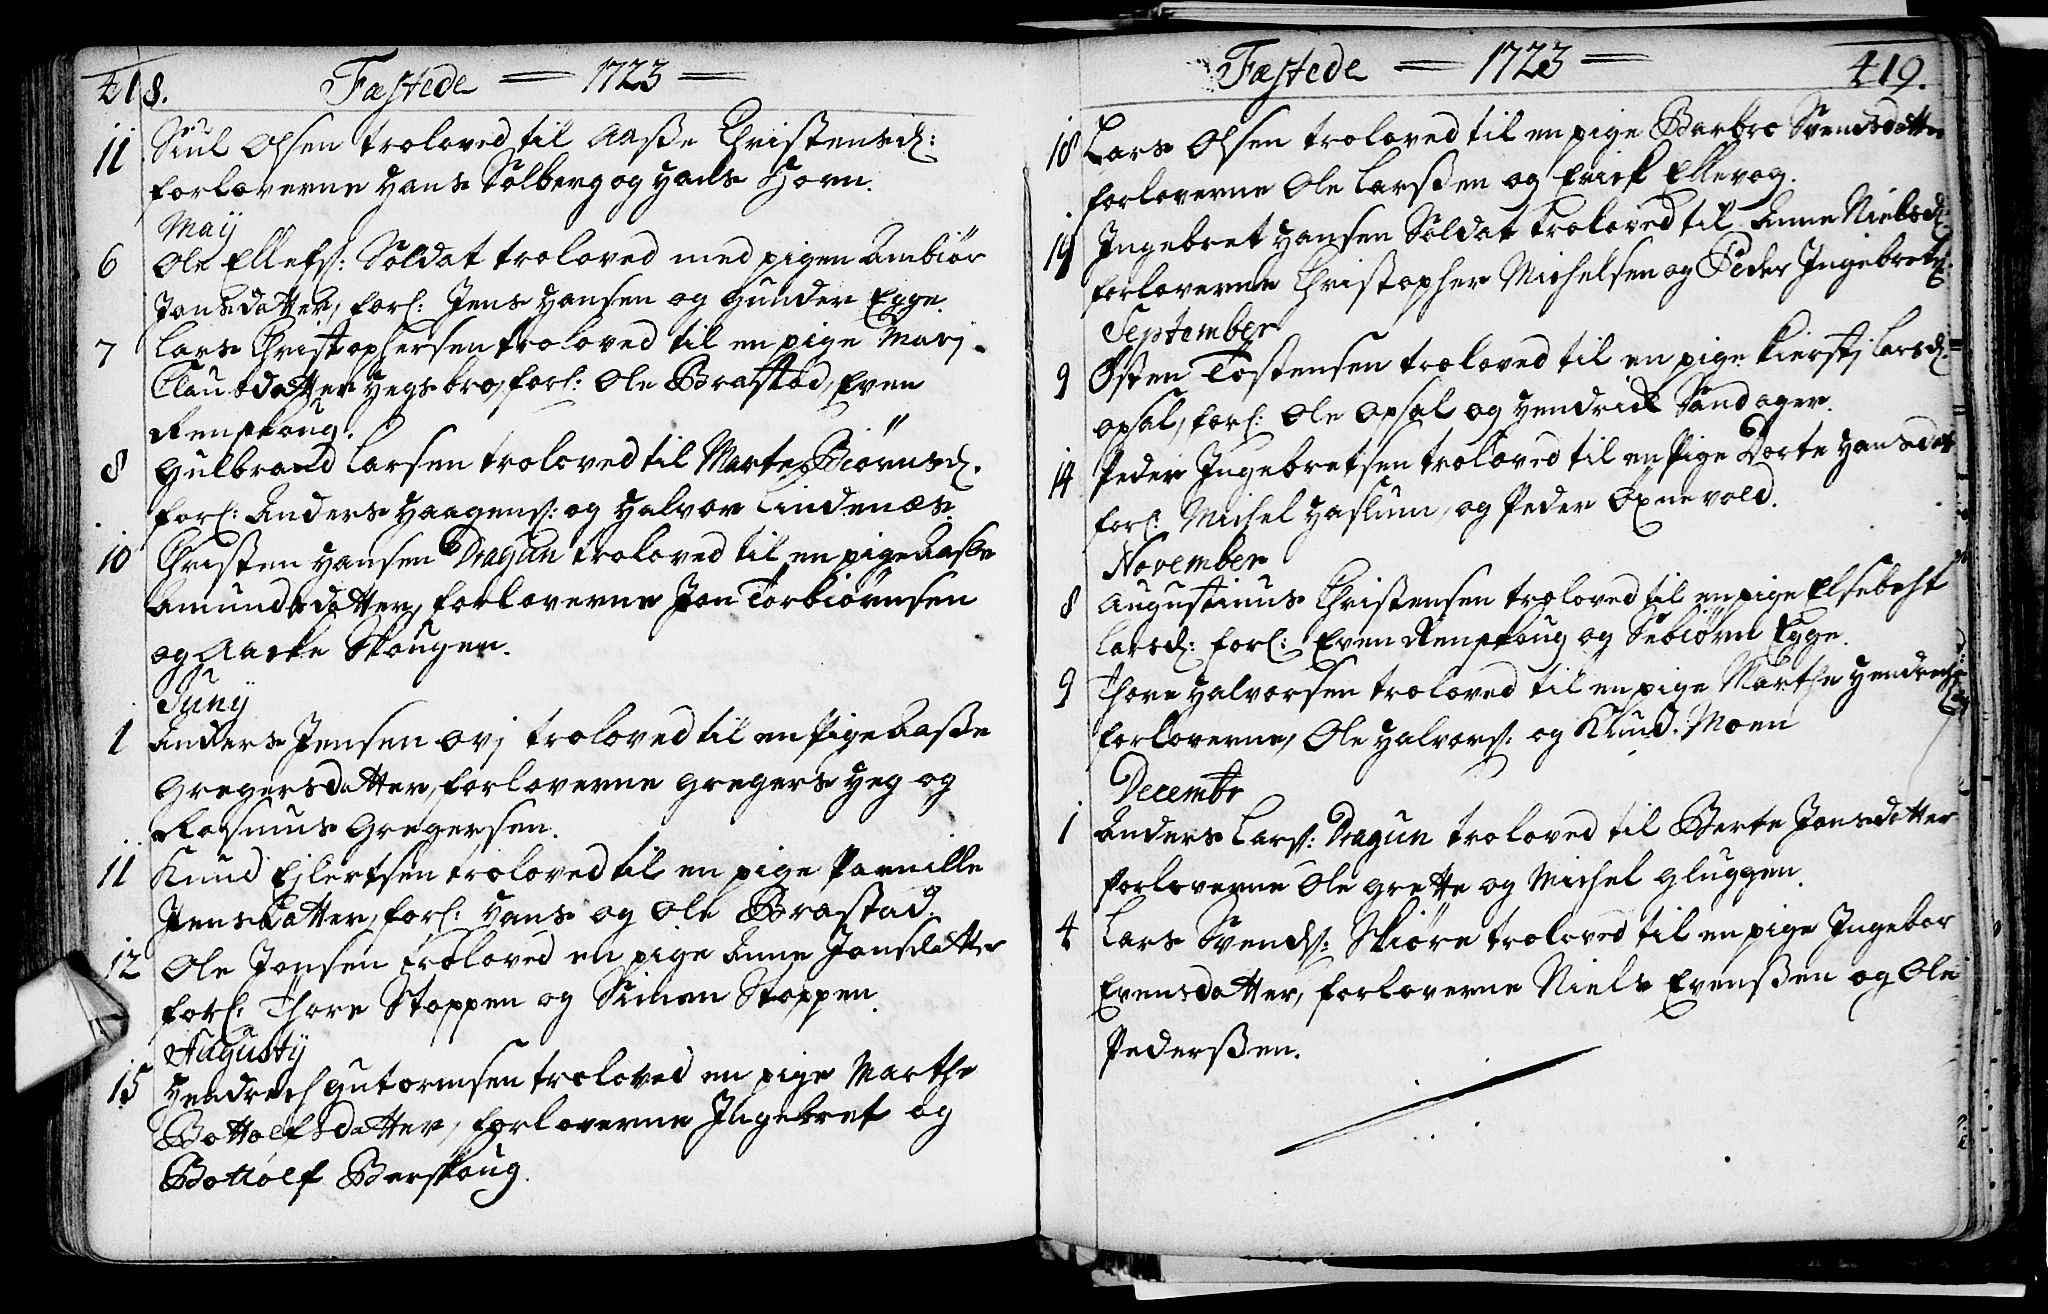 418. Fæstede = 1723 =
11 Siul Olsen troloved til Aasse Christensd:
forloverne Hans Solberg og Hans Horn.
May
6 Ole Ellefs: Soldat troloved med pigen Anbiør
Jonsdatter, forl: Jens Hansen og Gunder Egge.
7 Lars Christophersen troloved til en pige Mari
Clausdatter Hegsbro, forl: Ole Brastad, Even
Renskoug.
8 Gulbrand Larsen troloved til Marte Biørnsd.
forl: Anders Haagens: og Halvor Lindenæs.
10 Christen Hansen Dragun troloved til en pige Aasse
Amundsdatter, forloverne Jon Torbiørnsen
og Aacke Skougen.
Juny
1 Anders Jensen øvj troloved til en Pige Aasse
Gregersdatter, forloverne Gregers Heg og
Rasmus Gregersen.
11 Knud Ejlertsen troloved til en pige Pernille
Jensdatter, forl: Hans og Ole Brastad.
12 Ole Jonsen troloved en pige Anne Jonsdatter
forl: Thore Stoppen og Simen Stoppen.
Augusty
15 Hendrech Gutormsen troloved en pige Marthe
Bottolfsdatter, forloverne Ingebret og
Bottolf Berskoug.
Fæstede = 1723 = 419.
18 Lars Olsen troloved til en pige Barbro Svendsdatter
forloverne Ole Larssen og Erick Ellevog.
19 Ingebret Hansen Soldat troloved til Anne Nielsd:
forloverne Christopher Michelsen og Peder Ingebrets:
September
9 Østen Tostensen troloved til en pige Kierstj Larsd:
Opsal, forl: Ole Opsal og Hendrick Sandager.
14 Peder Ingebretsen troloved til en Pige Dorte Hansdat
forl: Michel Haslum, og Peder Øxnevold.
November
8 Augustinus Christensen troloved til en pige Elsebeht
Larsd: forl: Even Renskoug og Sebiørn Egge.
9 Thore Halvorsen troloved til en pige Marthe Hendrechs
forloverne, Ole Halvors: og Knud Moen
Decembr
1 Anders Lars: Dragun troloved til Berte Jonsdatter
forloverne Ole Grette og Michel Gluggen.
4 Lars Svends: Skiøre troloved til en pige Ingebor
Evensdatter, forloverne Niels Evenssen og Ole
Pederssen.